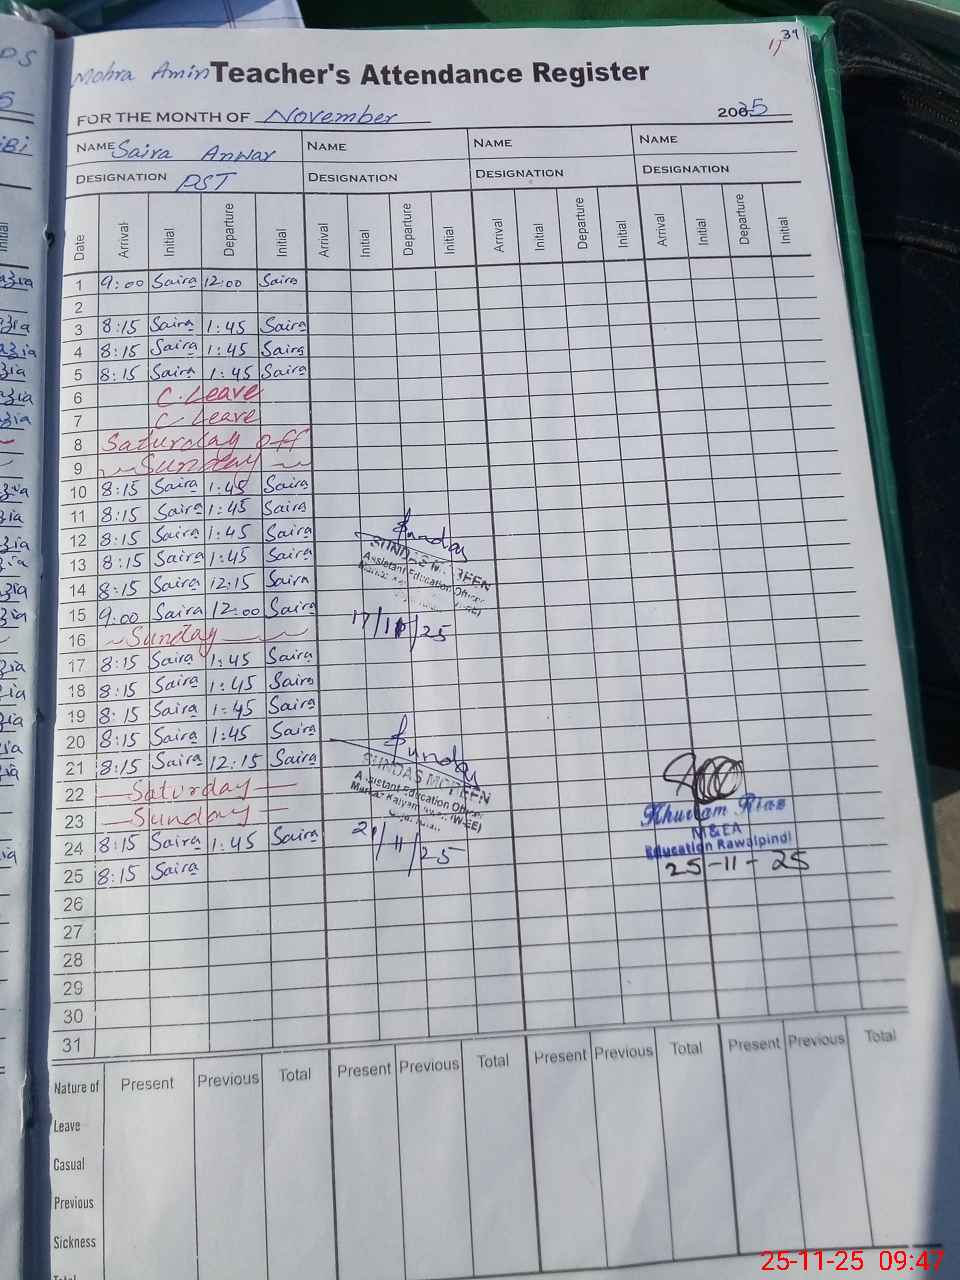 34
Mohra Amin Teacher's Attendance Register
FOR THE MONTH OF November 2025
NAME Saira Anwar NAME NAME NAME
DESIGNATION PST DESIGNATION DESIGNATION DESIGNATION
Date Arrival Initial Departure Initial Arrival Initial Departure Initial Arrival Initial Departure Initial Arrival Initial Departure Initial
1 9:00 Saira 12:00 Saira
2
3 8:15 Saira 1:45 Saira
4 8:15 Saira 1:45 Saira
5 8:15 Saira 1:45 Saira
6 C. Leave
7 C Leave
8 Saturday off
9 Sunday
10 8:15 Saira 1:45 Saira
11 8:15 Saira 1:45 Saira
12 8:15 Saira 1:45 Saira
13 8:15 Saira 1:45 Saira
14 8:15 Saira 12:15 Saira
15 9:00 Saira 12:00 Saira
16 Sunday
17 8:15 Saira 1:45 Saira
18 8:15 Saira 1:45 Saira
19 8:15 Saira 1:45 Saira
20 8:15 Saira 1:45 Saira
21 8:15 Saira 12:15 Saira
22 Saturday
23 Sunday
24 8:15 Saira 1:45 Saira
25 8:15 Saira
26
27
28
29
30
31
Sundas
Assistant Education Officer
17/11/25
Sundas
SUNDAS
Assistant Education Officer
Markaz
21/11/25
Khurram Riaz
M&EA
Education Rawalpindi
25-11-25
Nature of Present Previous Total Present Previous Total Present Previous Total Present Previous Total
Leave
Casual
Previous
Sickness
25-11-25 09:47